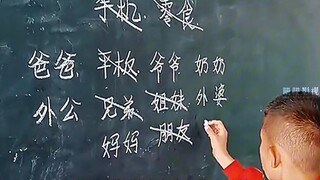 手机 零食
爸爸 平板 爷爷 奶奶
外公 兄弟 姐妹 外婆
妈妈 朋友